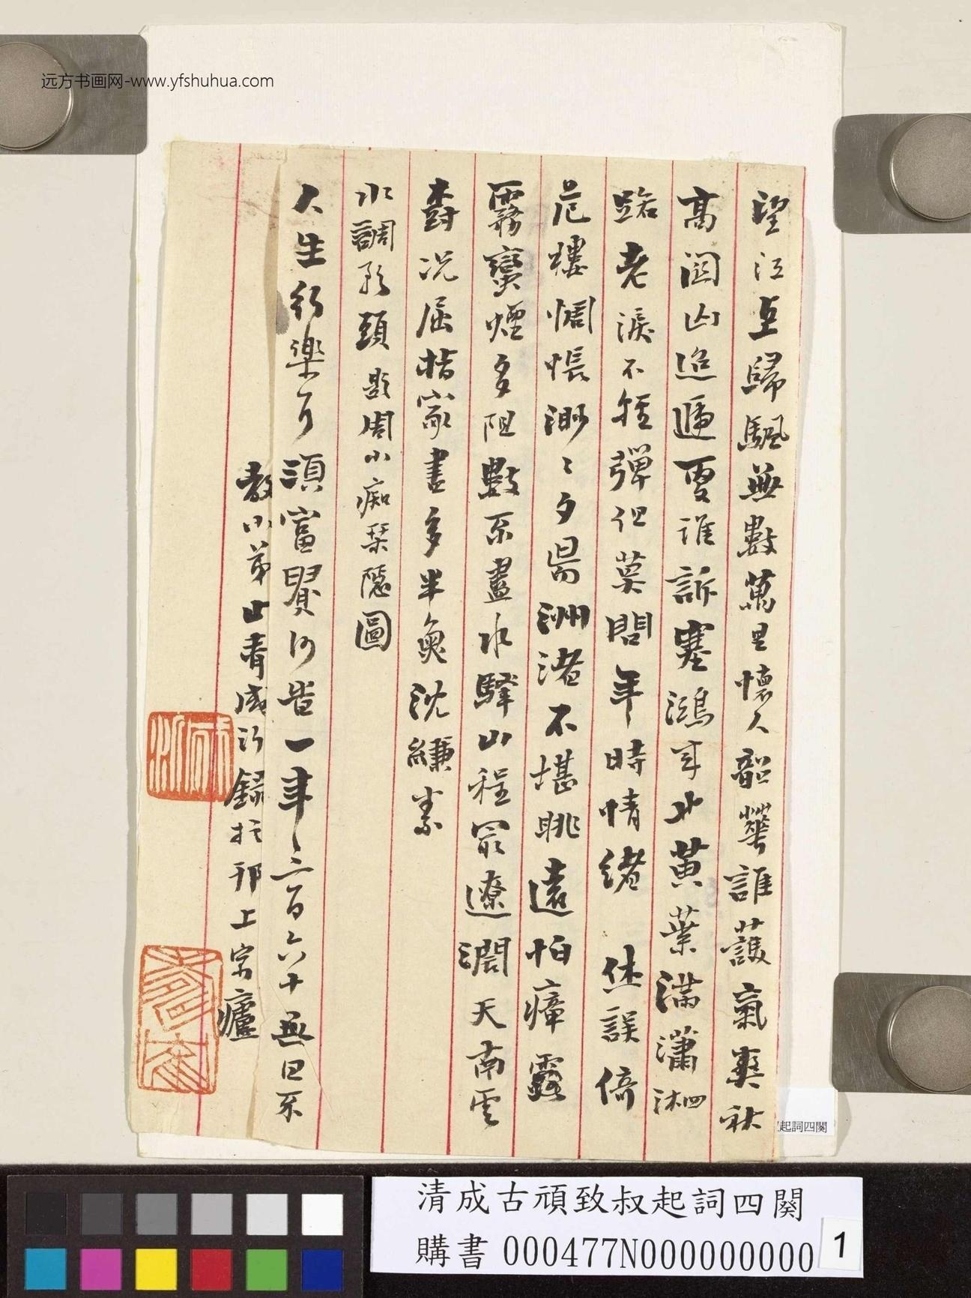 远方书画网-www.yfshuhua.com
望江亙歸颿無數萬里懷人韶華誰護氣爽秋
高關山迢遞更誰訴塞鴻黃葉滿瀟湘
路老淚不輕彈但莫問年時情緒 休誤倚
危樓惆悵渺〻夕陽洲渚不堪眺遠怕瘴露
霧蠻煙多阻數不盡水驛山程最遼濶天南雲
樹況屈指家書多半魚沈縑素
水調歌頭 題周小痴琴隱圖
人生行樂耳須富貴何皆一年〻三百六十無日不
教小弟成沂錄於邗上宗廬
起詞四闋
清成古頑致叔起詞四闋
購書 000477N000000000
1